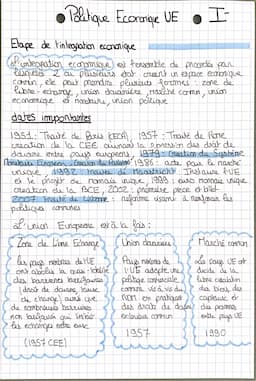 Politique Economique UE I-
Etape de l'intégration économique
L'intégration économique est l'ensemble de procédés par
lesquels 2 ou plusieurs état créent un espace économique
commun, elle peut prendre plusieurs formes : zone de
libre-échange, union douanière, Marché commun, union
économique et monétaire, union politique
dates importantes
1951 : Traité de Paris (CECA), 1957 : Traité de Rome,
création de la CEE annonçant la supression des droit de
douane entre pays européens, 1979 : création du Système
Monétaire Européen, 1986 : acte pour le marché
unique, 1992 : traité de Maastricht Instaure l'UE
et le projet de monnaie unique, 1999 : euro monnaie unique
création de la BCE, 2002 : première pièce et billet
2007 Traité de Lisbonne : réforme visant à renforcer les
politiques communes
L'Union Européenne est à la fois :
Zone de Libre Echange
les pays membres de l'UE
ont abolis la quasi-totalité
des barrières tarifaires
(droit de douane, taux
de change) ainsi que
de nombreuses barrières
non tarifaires qui limite
les échanges entre eux
(1957 CEE)
Union douanière
Pays membres de
l'UE adopte une
politique commerciale
commune vis à vis des
non en pratiquant
des droits de douane
extérieur commun
1957
Marché commun
Les pays UE ont
décidé de la
libre circulation
des biens, des
capitaux et
des personnes
entre pays UE
1990